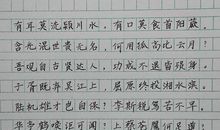 有耳莫洗颍川水，有口莫食首阳蕨。
含光混世贵无名，何用孤高比云月？
吾观自古贤达人，功成不退皆殒身。
子胥既弃吴江上，屈原终投湘水滨。
陆机雄才岂自保？李斯税驾苦不早。
华亭鹤唳讵可闻？上蔡苍鹰何足道